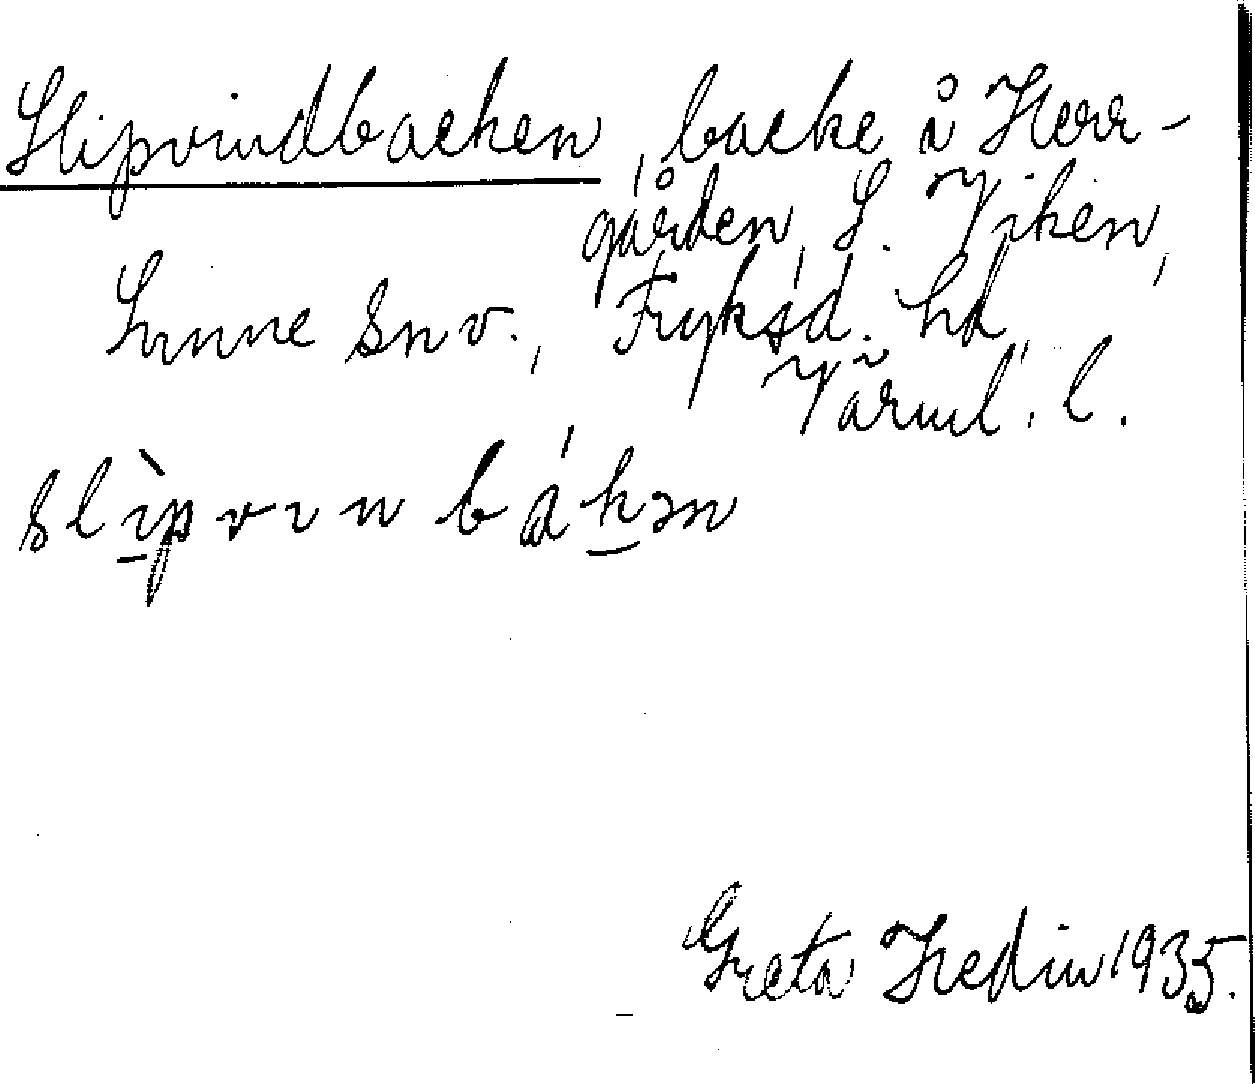 Slipvindbacken, backe å Herr-
gården, S. Viken,
Sunne snv., Fryksd. hd,
Värml. l.
slìpvın bákən
Greta Hedin 1935.